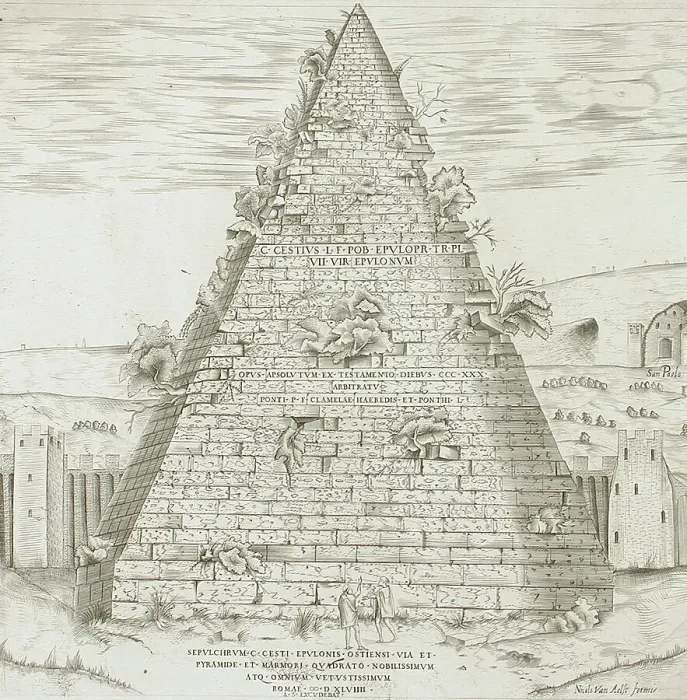 C · CESTIVS · L · F · POB · EPVLO·PR · TR·PL
VII · VIR · EPVLONVM
OPVS · APSOLVTVM · EX · TESTAMENTO · DIEBVS · CCC · XXX
ARBITRATV
PONTI · P · F · CLAMELAE · HAEREDIS · ET · PONTHI · L
San Paolo
SEPVLCHRVM · C · CESTI · EPVLONIS · OSTIENSI · VIA · ET ·
PYRAMIDE · ET · MARMORI · QVADRATO · NOBILISSIMVM
ATQ · OMNIVM · VETVSTISSIMVM
ROMAE · ∞ · D · XLVIIII
A · S · EXCVDEBAT
Nicolo Van Aelst formis